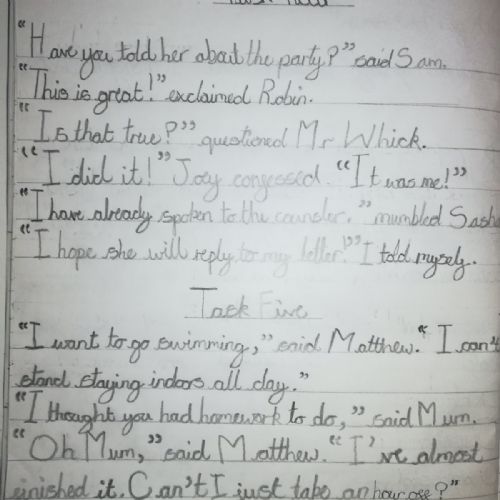 "Have you told her about the party?" said Sam.
"This is great!" exclaimed Robin.
"Is that true?" questioned Mr Whick.
"I did it!" Joey congessed. "It was me!"
"I have already spoken to the counsler." mumbled Sasha
"I hope she will reply to my letter!" I told myself.
Task Five
"I want to go swimming," said Matthew. "I can't
stand staying indors all day."
"I thought you had homework to do," said Mum.
"Oh Mum," said Matthew. "I've almost
finished it. Can't I just take an hour off?"